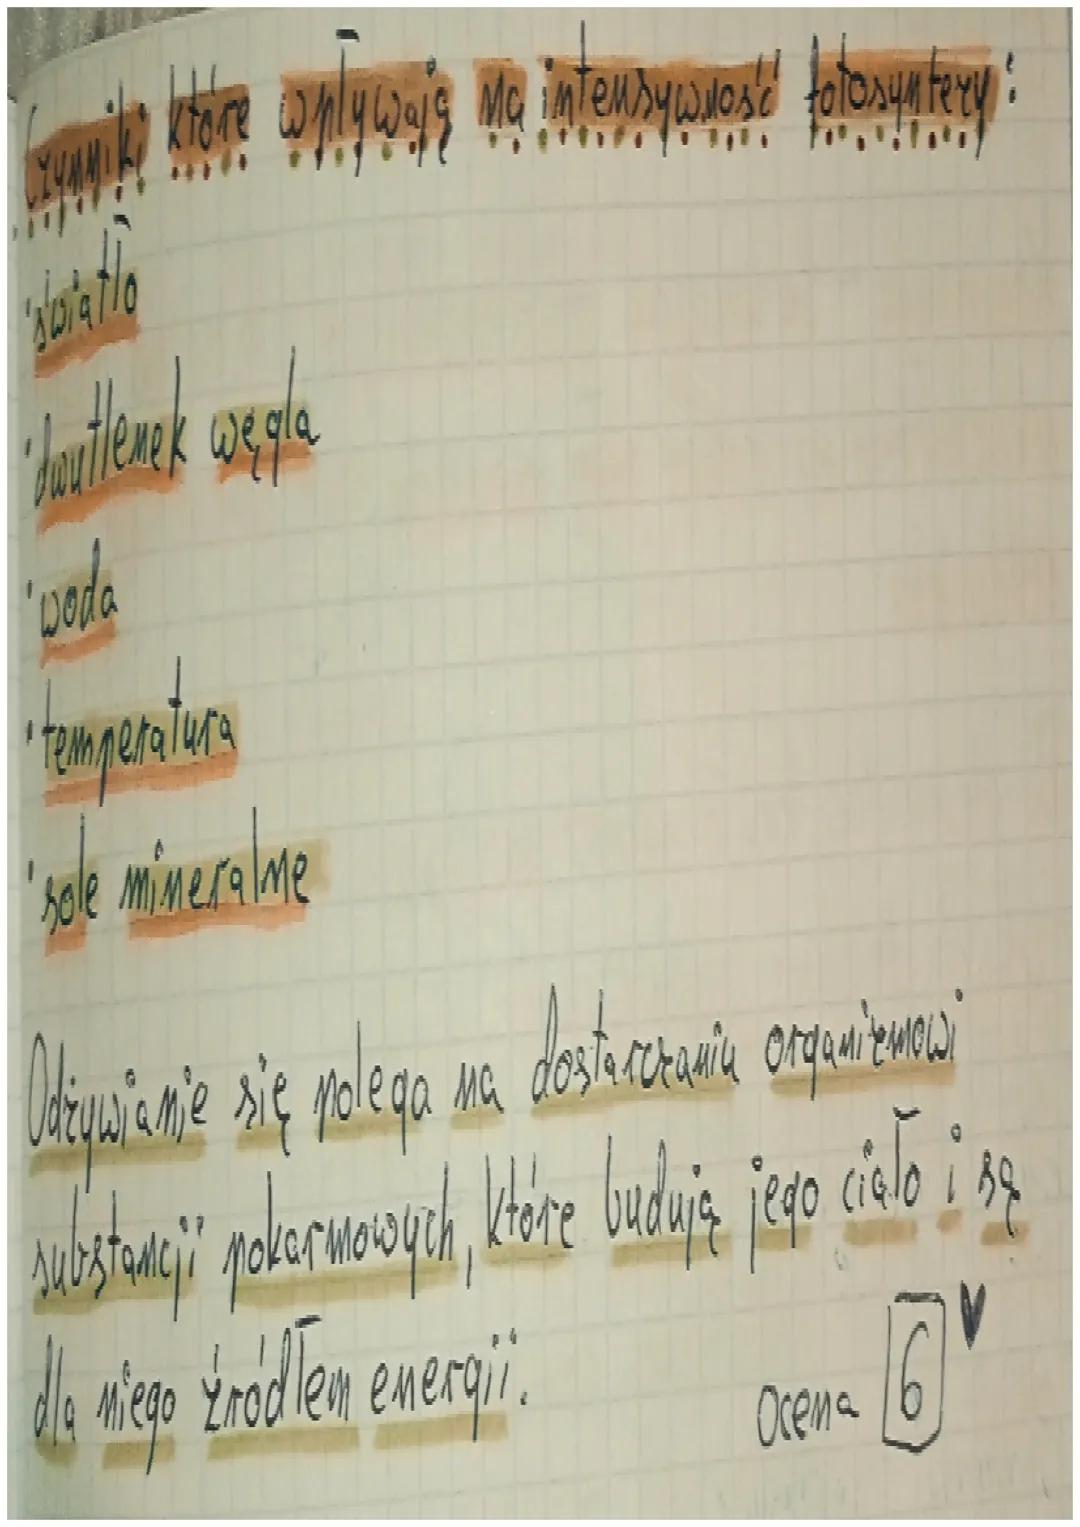 Czynniki które wpływają na intensywność fotosyntezy:
·światło
·dwutlenek węgla
·woda
·temperatura
·sole mineralne
Odżywianie się polega na dostarczaniu organizmowi
substancji pokarmowych, które budują jego ciało i są
dla niego źródłem energii.
Ocena 6